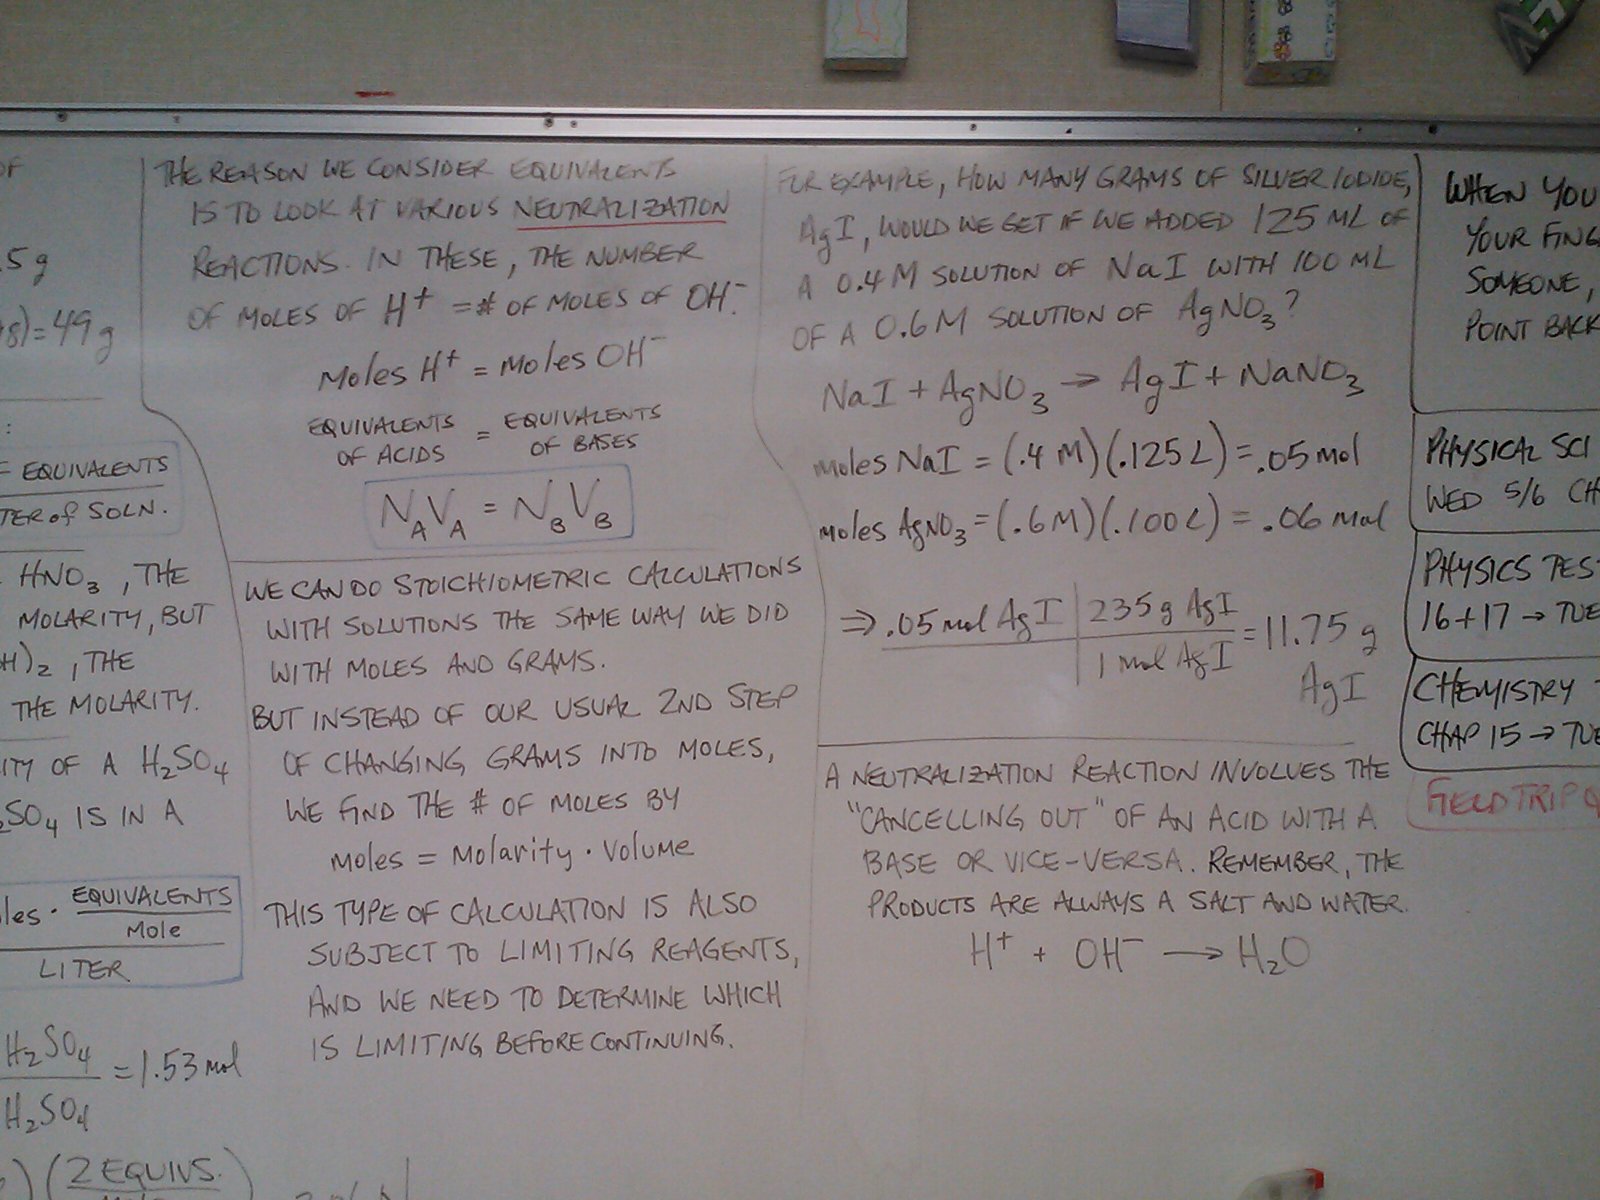 OF
.5g
+8)=49g
:
F EQUIVALENTS
TER of SOLN.
HNO3, THE
MOLARITY, BUT
H)2, THE
THE MOLARITY.
ITY OF A H2SO4
2SO4 IS IN A
les · EQUIVALENTS
MOLE
LITER
H2SO4
= 1.53 mol
H2SO4
) (2 EQUIVS.
THE REASON WE CONSIDER EQUIVALENTS
IS TO LOOK AT VARIOUS NEUTRALIZATION
REACTIONS. IN THESE, THE NUMBER
OF MOLES OF H+ = # OF MOLES OF OH-.
Moles H+ = Moles OH-
EQUIVALENTS OF ACIDS = EQUIVALENTS OF BASES
NAVA = NBVB
WE CAN DO STOICHIOMETRIC CALCULATIONS
WITH SOLUTIONS THE SAME WAY WE DID
WITH MOLES AND GRAMS.
BUT INSTEAD OF OUR USUAL 2ND STEP
OF CHANGING GRAMS INTO MOLES,
WE FIND THE # OF MOLES BY
Moles = Molarity · Volume
THIS TYPE OF CALCULATION IS ALSO
SUBJECT TO LIMITING REAGENTS,
AND WE NEED TO DETERMINE WHICH
IS LIMITING BEFORE CONTINUING.
FOR EXAMPLE, HOW MANY GRAMS OF SILVER IODIDE,
AgI, WOULD WE GET IF WE ADDED 125 ML OF
A 0.4 M SOLUTION OF NaI WITH 100 ML
OF A 0.6 M SOLUTION OF AgNO3?
NaI + AgNO3 → AgI + NaNO3
moles NaI = (.4 M)(.125 L) = .05 mol
moles AgNO3 = (.6 M)(.100 L) = .06 mol
⇒ .05 mol AgI | 235 g AgI = 11.75 g
1 mol AgI
AgI
A NEUTRALIZATION REACTION INVOLVES THE
"CANCELLING OUT" OF AN ACID WITH A
BASE OR VICE-VERSA. REMEMBER, THE
PRODUCTS ARE ALWAYS A SALT AND WATER.
H+ + OH- → H2O
WHEN YOU
YOUR FING
SOMEONE,
POINT BACK
PHYSICAL SCI
WED 5/6 CH
PHYSICS TES
16+17 → TUE
CHEMISTRY T
CHAP 15 → TUE
FIELD TRIP